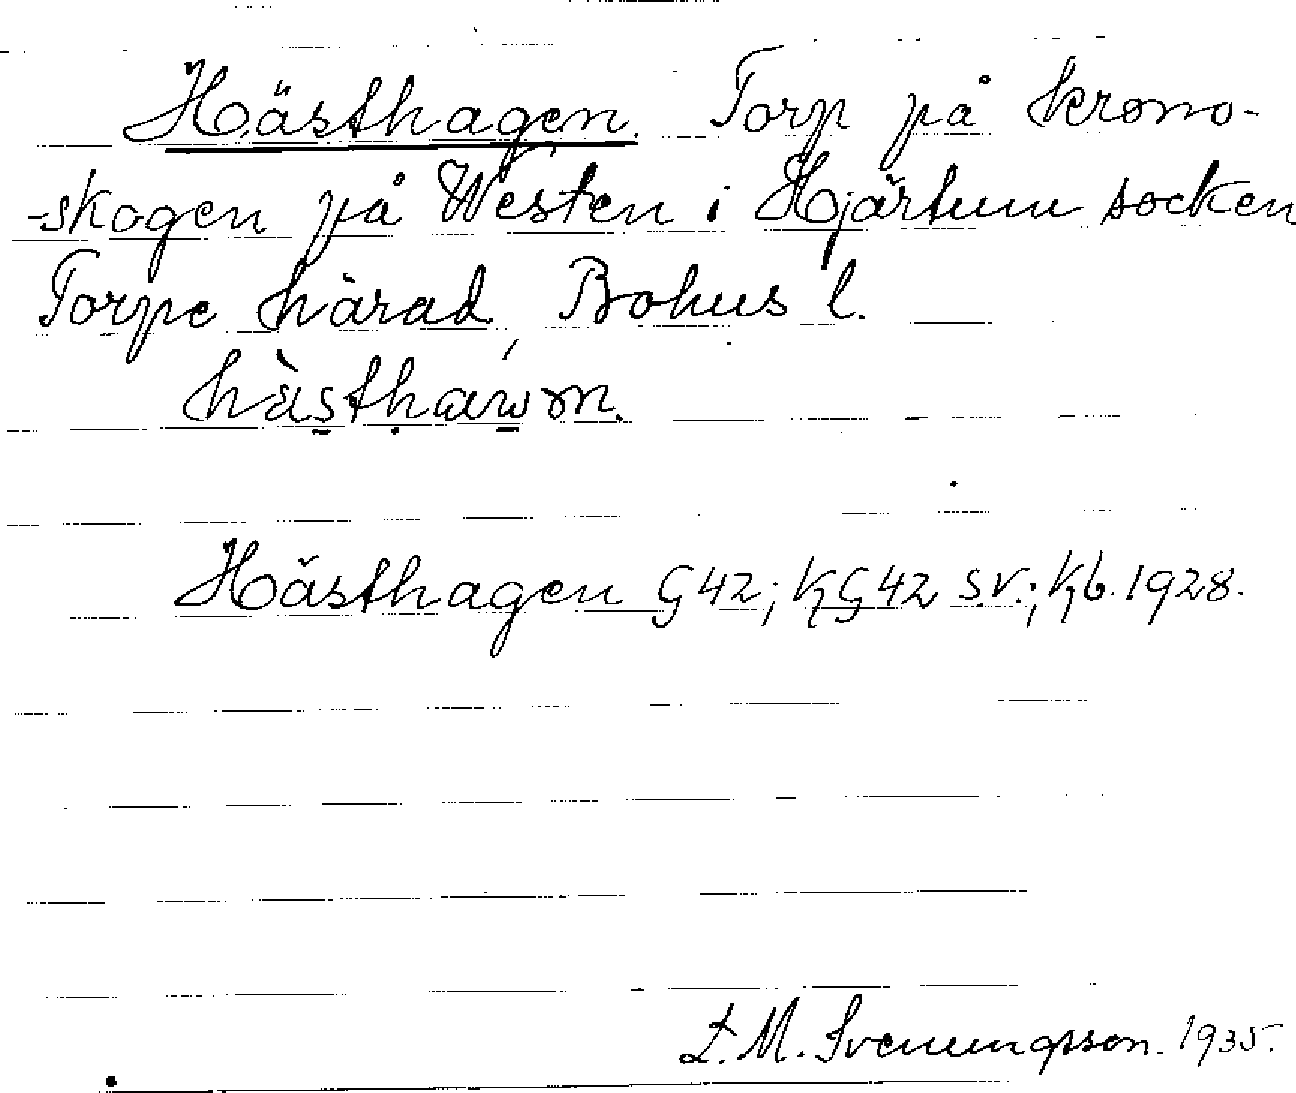 Hästhagen. Torp på krono-
-skogen på Westen i Hjärtum socken
Torpe härad, Bohus l.
hàsthaẃon.
Hästhagen G42; KG42 s.v.; Kb. 1928.
L. M. Svenungsson. 1935.